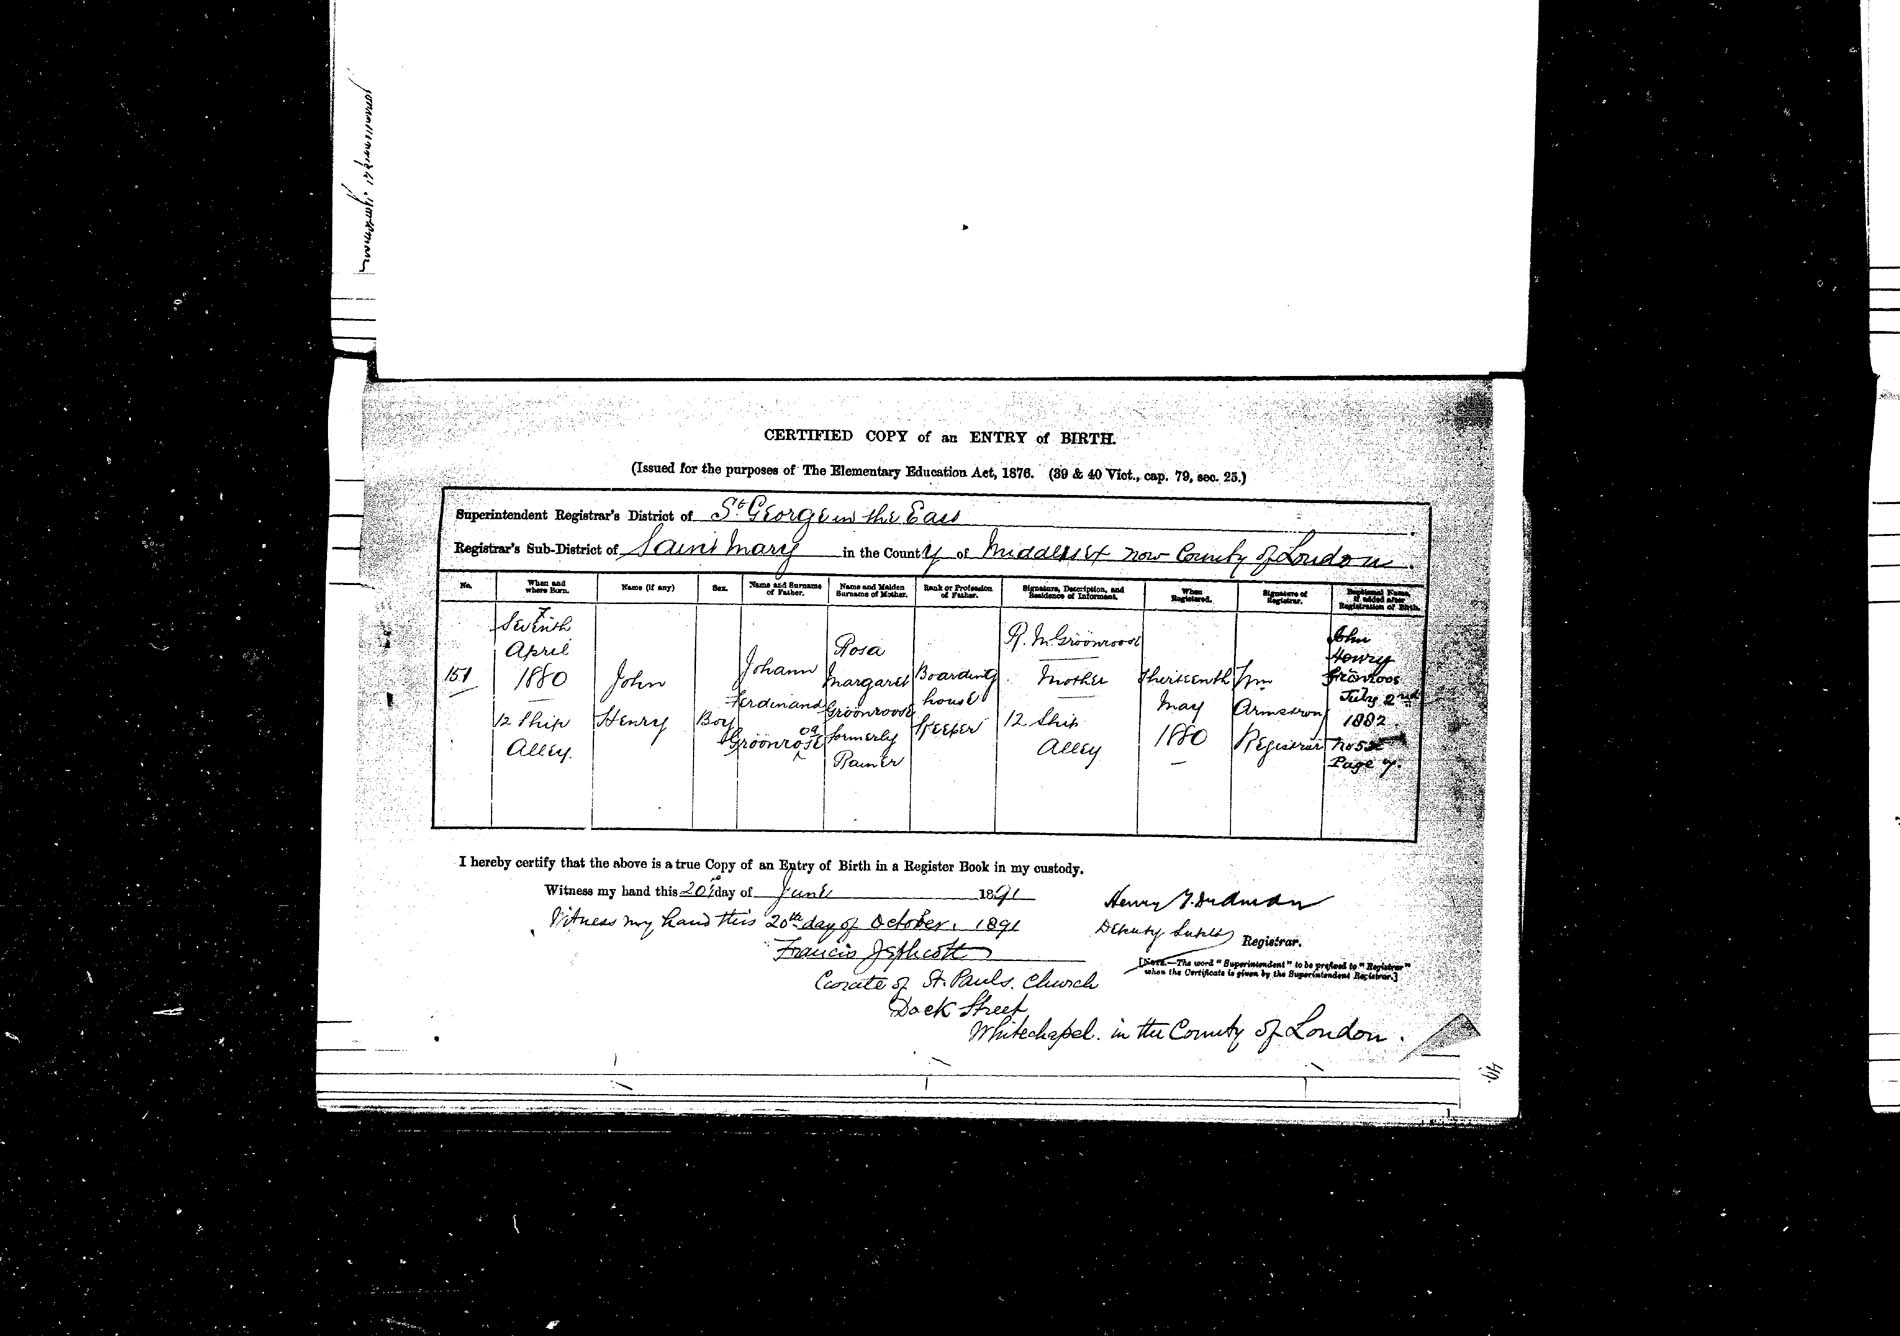 CERTIFIED COPY of an ENTRY of BIRTH.
(Issued for the purposes of The Elementary Education Act, 1876. (39 & 40 Vict., cap. 79, sec. 25.)
Superintendent Registrar's District of St George in the East
Registrar's Sub-District of Saint Mary in the County of Middlesex now County of London.
No.
When and where Born.
Name (if any)
Sex.
Name and Surname of Father.
Name and Maiden Surname of Mother.
Rank or Profession of Father.
Signature, Description, and Residence of Informant.
When Registered.
Signature of Registrar.
Baptismal Name, if added after Registration of Birth.
151
Seventh
April
1880
12 Ship
Alley.
John
Henry
Boy
Johann
Ferdinand
Groonroose
Rosa
Margaret
Groonroose
formerly
Rainer
Boarding
house
Keeper
R. M. Groonroose
Mother
12 Ship
Alley
Thirteenth
May
1880
Wm
Armstrong
Registrar
John
Henry
July 2nd
1882
Page 7.
I hereby certify that the above is a true Copy of an Entry of Birth in a Register Book in my custody.
Witness my hand this 20th day of June 1891
Witness my hand this 20th day of October, 1891
Francis Jephcott
Curate of St. Pauls. Church
Dock Street
Whitechapel. in the County of London.
Henry
Deputy Supt Registrar.
[NOTE.—The word "Superintendent" to be prefixed to "Registrar"
when the Certificate is given by the Superintendent Registrar.]
49.